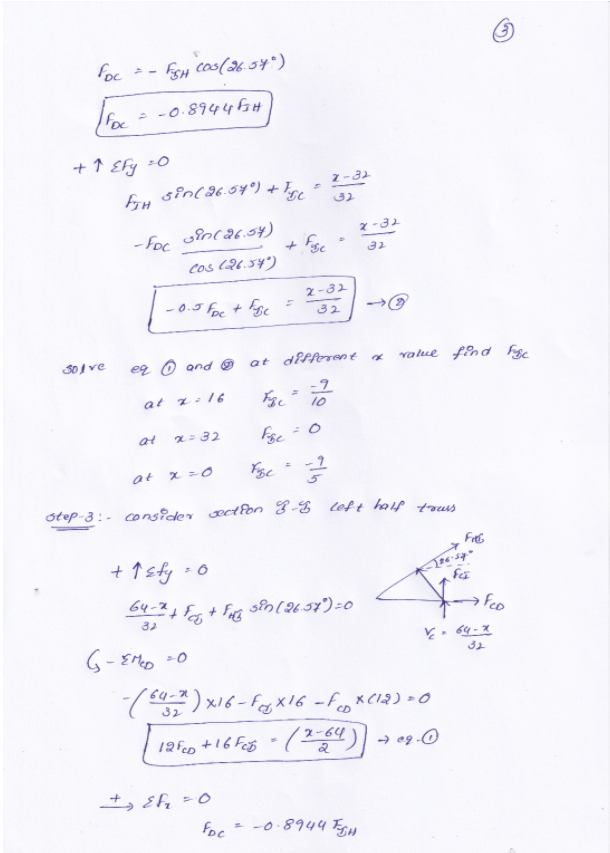 3
F_DC = - F_JH cos(26.57°)
F_DC = -0.8944 F_JH
+ ↑ ΣFy = 0
F_JH sin(26.57°) + F_JC = x-32 / 32
-F_DC sin(26.57) / cos(26.57°) + F_JC = x-32 / 32
-0.5 F_DC + F_JC = x-32 / 32 → ②
solve eq ① and ② at different x value find F_JC
at x = 16 F_JC = -9/10
at x = 32 F_JC = 0
at x = 0 F_JC = -9/5
Step-3 :- consider section left half truss
+ ↑ Σfy = 0
64-x / 32 + F_CJ + F_HJ sin(26.57°) = 0
F_HJ
26.57°
F_CJ
F_CD
V_C = 64-x / 32
- ΣM_CD = 0
-(64-x / 32) x16 - F_CJ x16 - F_CD x(12) = 0
12F_CD + 16F_CJ = (x-64 / 2) → eq.①
+ → ΣFx = 0
F_DC = -0.8944 F_JH